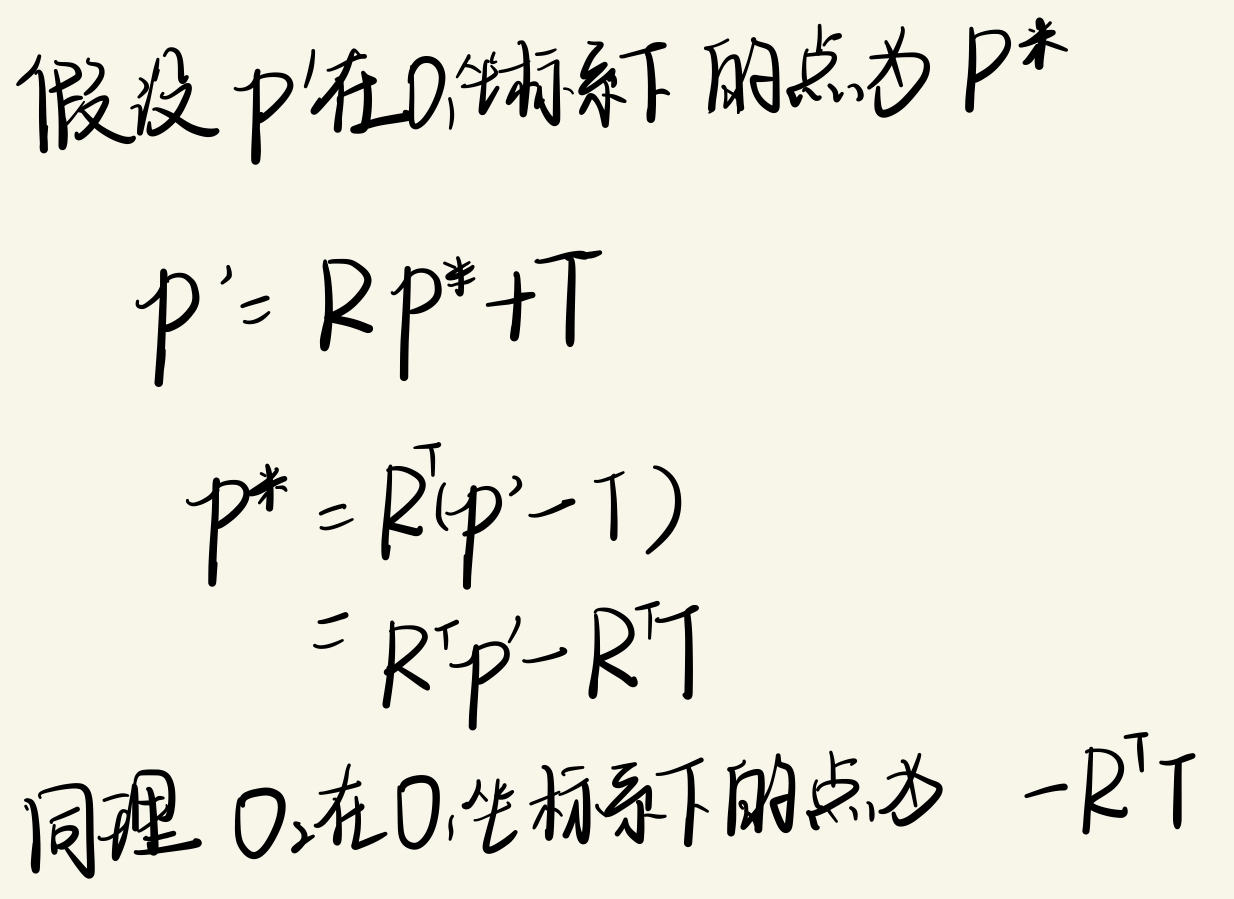 假设 p'在O₁坐标系下 的点为 p*
p' = Rp* + T
p* = Rᵀ(p' - T)
= Rᵀp' - RᵀT
同理 O₂在O₁坐标系下的点为 -RᵀT